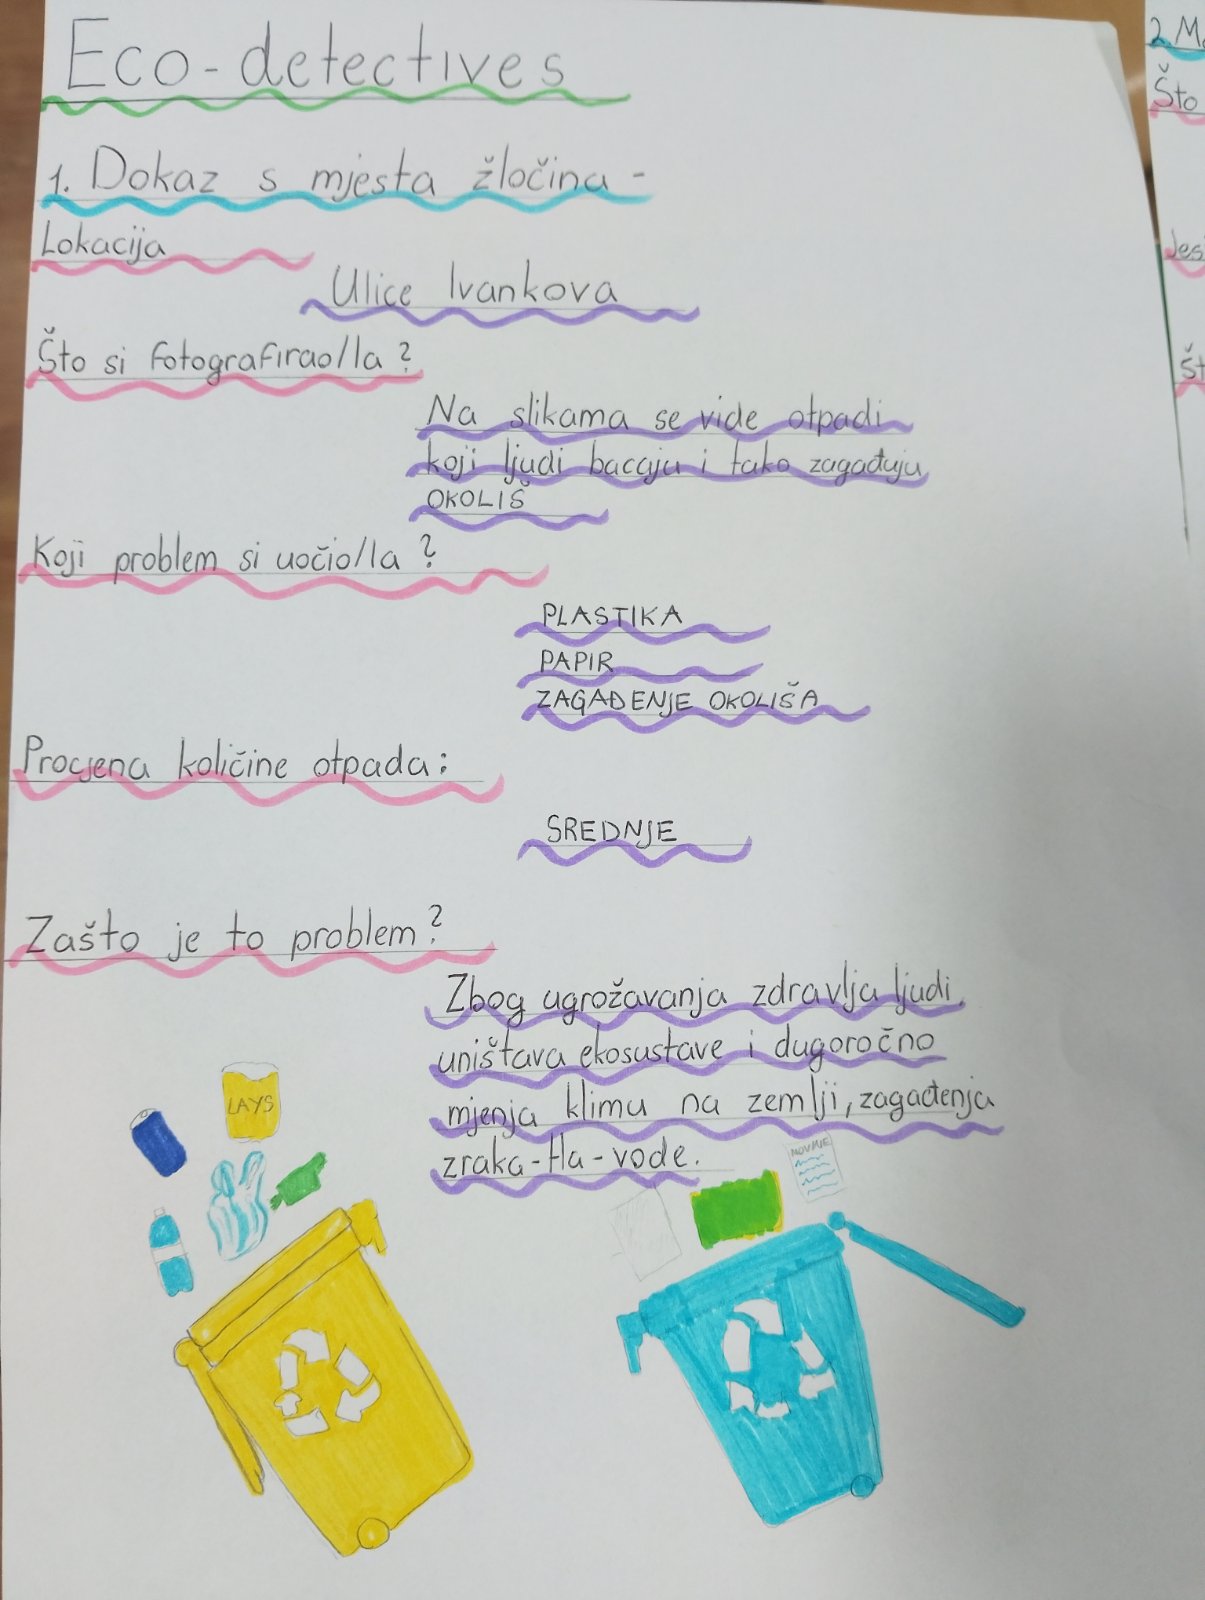 Eco-detectives
1. Dokaz s mjesta žločina -
Lokacija
Ulice Ivankova
Što si fotografirao/la?
Na slikama se vide otpadi
koji ljudi bacaju i tako zagađuju
OKOLIŠ
Koji problem si uočio/la?
PLASTIKA
PAPIR
ZAGAĐENJE OKOLIŠA
Procjena količine otpada:
SREDNJE
Zašto je to problem?
Zbog ugrožavanja zdravlja ljudi,
uništava ekosustave i dugoročno
mjenja klimu na zemlji, zagađenja
zraka-tla-vode.
LAYS
NOVINE
2. M
Što
Jes
Št